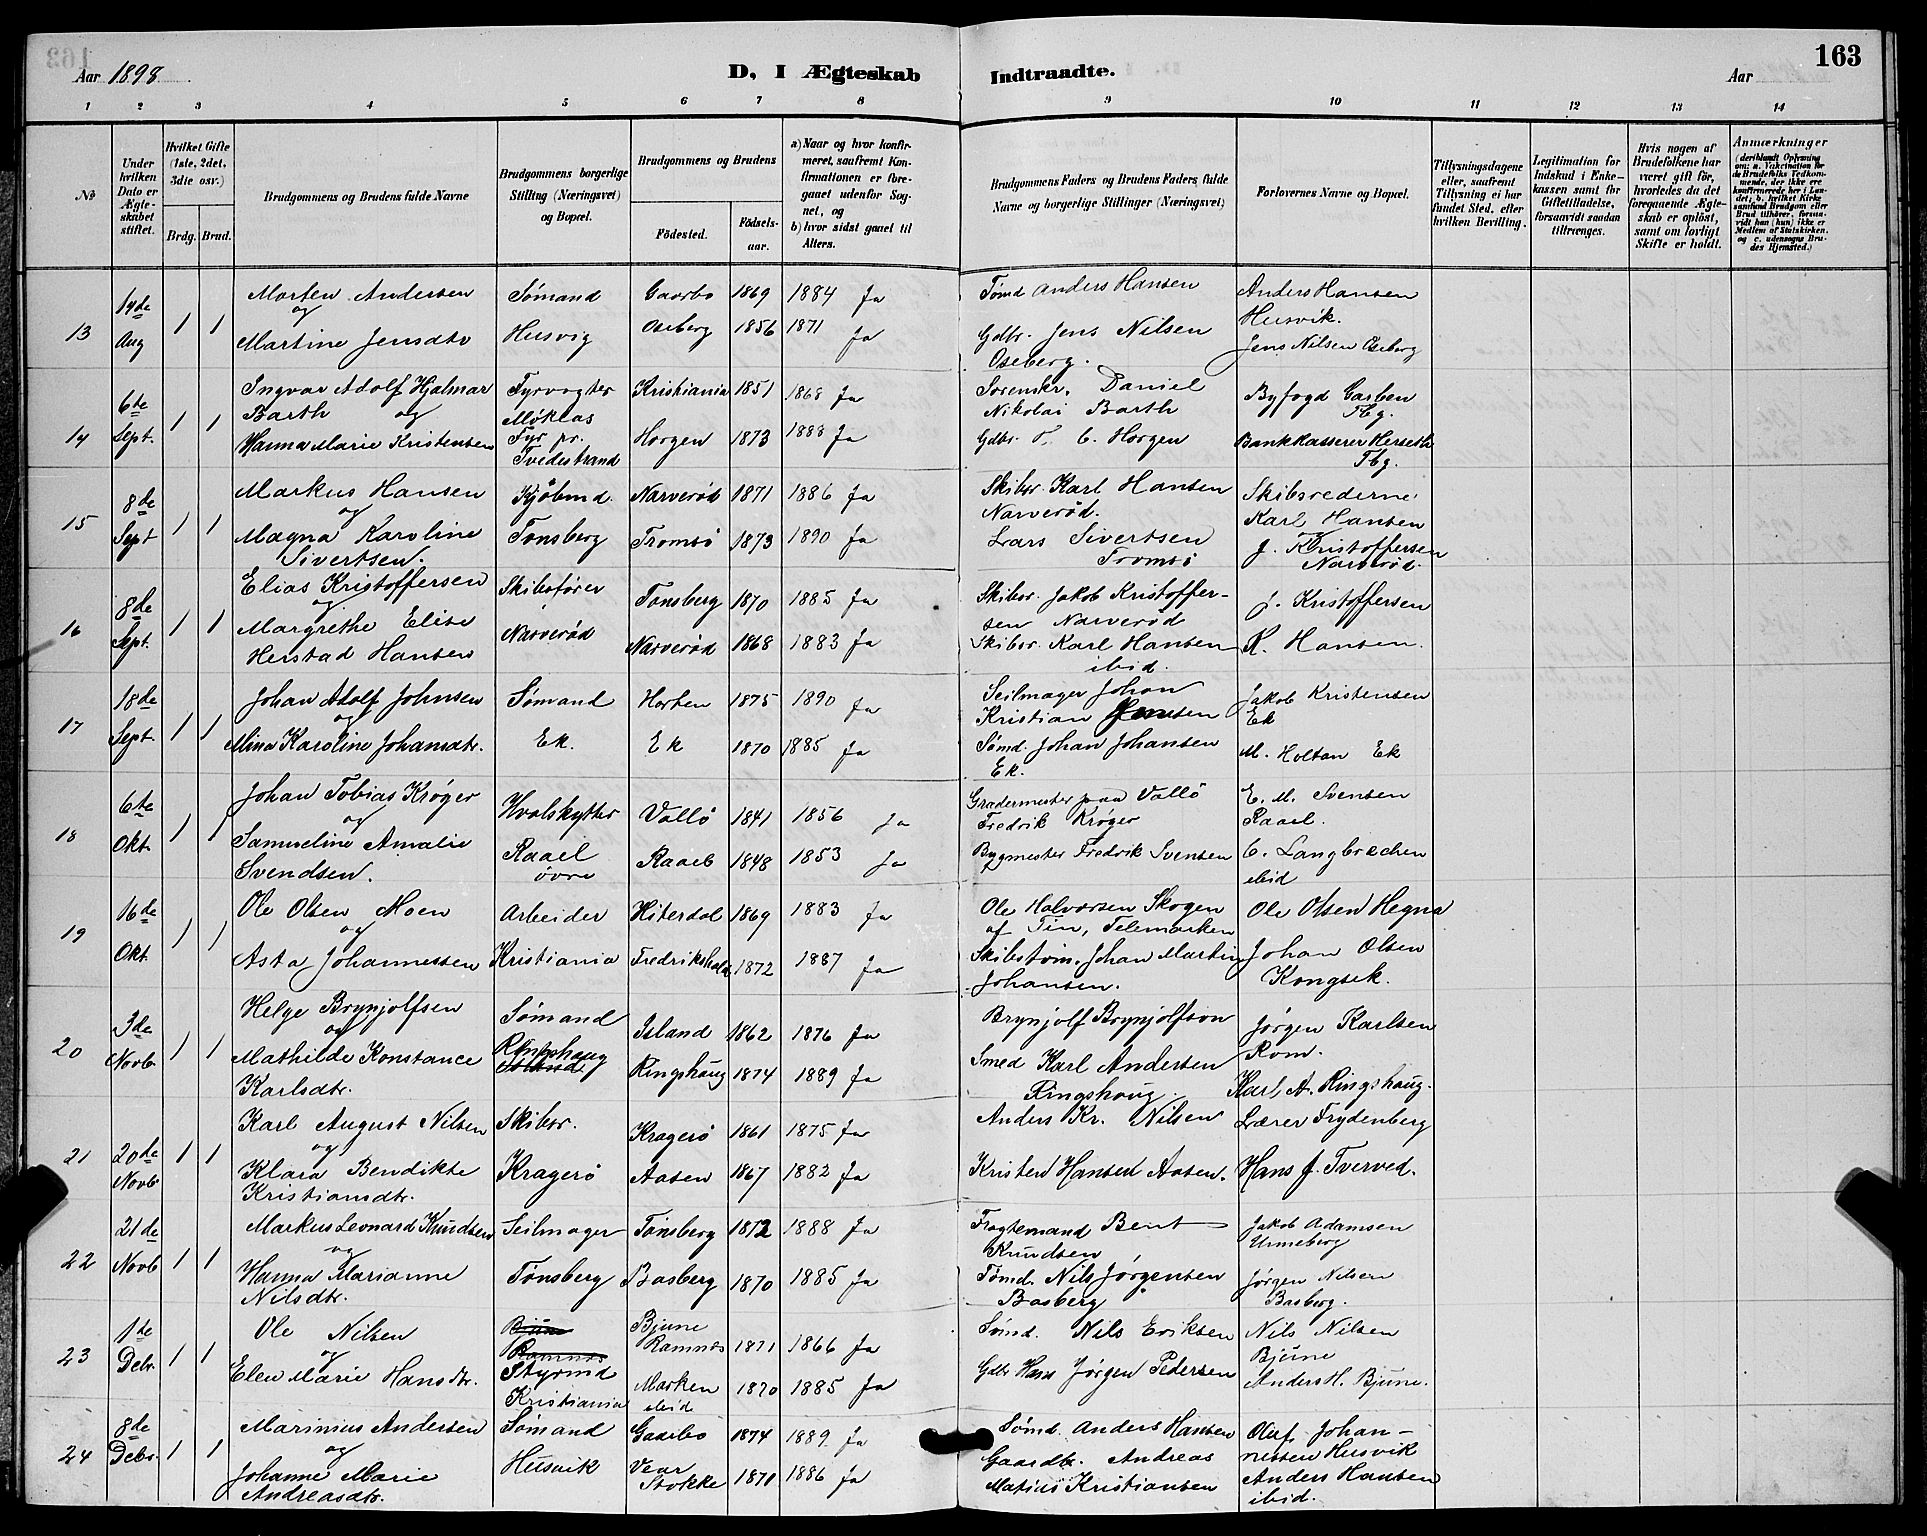 163
Aar 1898
D, I Ægteskab Indtraadte.
Aar
1 2 3 4 5 6 7 8 9 10 11 12 13 14
№
Under hvilken Dato er Ægteskabet stiftet.
Hvilket Gifte (1ste, 2det, 3die osv.)
Brdg. Brud.
Brudgommens og Brudens fulde Navne
Brudgommens borgerlige Stilling (Næringsvei) og Bopæl.
Brudgommens og Brudens
Fødested. Fødsels-aar.
a) Naar og hvor konfirmeret, saafremt Konfirmationen er foregaaet udenfor Sognet, og
b) hvor sidst gaaet til Alters.
Brudgommens Faders og Brudens Faders fulde Navne og borgerlige Stillinger (Næringsvei)
Forlovernes Navne og Bopæl.
Tillysningsdagene eller, saafremt Tillysning ei har fundet Sted, efter hvilken Bevilling.
Legitimation for Indskud i Enkekassen samt for Giftetilladelse, forsaavidt saadan tiltrænges.
Hvis nogen af Brudefolkene har været gift før, hvorledes da det foregaaende Ægteskab er opløst, samt om lovligt Skifte er holdt.
Anmærkninger
(deriblandt Oplysning om: a. Vakcination for de Brudefolks Vedkommende, der ikke ere konfirmerede her i Landet; b. hvilket Kirkesamfund Brudgom eller Brud tilhører, forsaavidt han (hun) ikke er Medlem af Statskirken, og c. udensogns Brudes Hjemsted.)
13 14de Aug 1 1
Morten Andersen Sømand Gaarbo 1869 1884 Ja Tømd Anders Hansen Anders Hansen
og Husvik.
Martine Jensdtr Husvig Oseberg 1856 1871 Ja Gdbr. Jens Nilsen Jens Nilsen Oseberg
Oseberg.
14 6te Sept. 1 1
Ingvar Adolf Hjalmar Fyrvogter Kristiania 1851 1868 Ja Sorenskr. Daniel Byfogd Garben
Barth og Møklas Nikolai Barth Tbg.
Hanna Marie Kristensen Fyr pr. Horgen 1873 1888 Ja Gdbr. C. Horgen Bankkasserer Herseth
Tvedestrand Tbg.
15 8de Sept 1 1
Markus Hansen Kjøbmd. Narverød 1871 1886 Ja Skibsr. Karl Hansen Skibsrederne
og Narverød. Karl Hansen
Magna Karoline Tønsberg Tromsø 1873 1890 Ja Lars Sivertsen J. Kristoffersen
Sivertsen. Tromsø Narverød.
16 8de Sept. 1 1
Elias Kristoffersen Skibsfører Tønsberg 1870 1885 Ja Skibsr. Jakob Kristoffer- J. Kristoffersen
og sen Narverød
Margrethe Elise Narverød Narverød 1868 1883 Ja Skibsr. Karl Hansen K. Hansen.
Herstad Hansen ibid.
17 18de Sept. 1 1
Johan Adolf Johnsen Sømand Horten 1875 1890 Ja Seilmager Johan Jakob Kristensen
og Kristian Jensen Ek
Mina Karoline Johansdtr. Ek. Ek 1870 1885 Ja Sømd. Johan Johansen M. Holtan Ek
Ek.
18 6te Okt. 1 1
Johan Tobias Krøger Hvalskytter Vallø 1841 1856 Ja Gradermester paa Vallø E. M. Svensen
og Fredrik Krøger Raael.
Samueline Amalie Raael Raael 1848 1853 Ja Bygmester Fredrik Svensen C. Langbrechen
Svendsen. øvre ibid
19 16de Okt. 1 1
Ole Olsen Moen Arbeider Hiterdal 1869 1883 Ja Ole Halvorsen Skogen Ole Olsen Hegna
og af Tin, Telemarken
Asta Johannessen Kristiania Fredrikshald 1872 1887 Ja Skibstøm. Johan Martin Johan Olsen
Johansen. Kongsek.
20 3de Novb. 1 1
Helge Brynjolfsen Sømand Island 1862 1876 Ja Brynjolf Brynjolfson Jørgen Karlsen
og Ringshaug Rom.
Mathilde Konstance Island Ringshaug 1874 1889 Ja Smed Karl Andersen Karl A. Ringshaug.
Karlsdtr. Ringshoug.
21 20de Novb 1 1
Karl August Nilsen Skibsr. Kragerø 1861 1875 Ja Anders Kr. Nilsen Lærer Frydenberg
og
Klara Bendikte Kragerø Aasen 1867 1882 Ja Kristen Hansen Aasen. Hans J. Tverved.
Kristiansdtr.
22 21de Novb 1 1
Markus Leonard Knudsen Seilmager Tønsberg 1872 1888 Ja Fragtemand Bent Jakob Adamsen
og Knudsen Unneberg
Hanna Marianne Tønsberg Basberg 1870 1885 Ja Tømd. Nils Jørgensen Jørgen Nilsen
Nilsdtr. Basberg Basberg.
23 1ste Debr. 1 1
Ole Nilsen Bjune Bjune 1871 1866 Ja Sømd. Nils Eriksen Nils Nilsen
og Ramnes Ramnes Bjune
Elen Marie Hansdtr. Styrmd Marken 1870 1885 Ja Gdbr Hans Jørgen Pedersen Anders H. Bjune.
Kristiania ibid
24 8de Debr. 1 1
Marinius Andersen Sømand Gaarbo 1874 1889 Ja Sømd. Anders Hansen Oluf Johan-
og nissen Husvik
Johanne Marie Husvik Vear 1870 1886 Ja Gaardbr. Andreas Anders Hansen
Andreasdtr. Stokke Matius Kristiansen ibid.